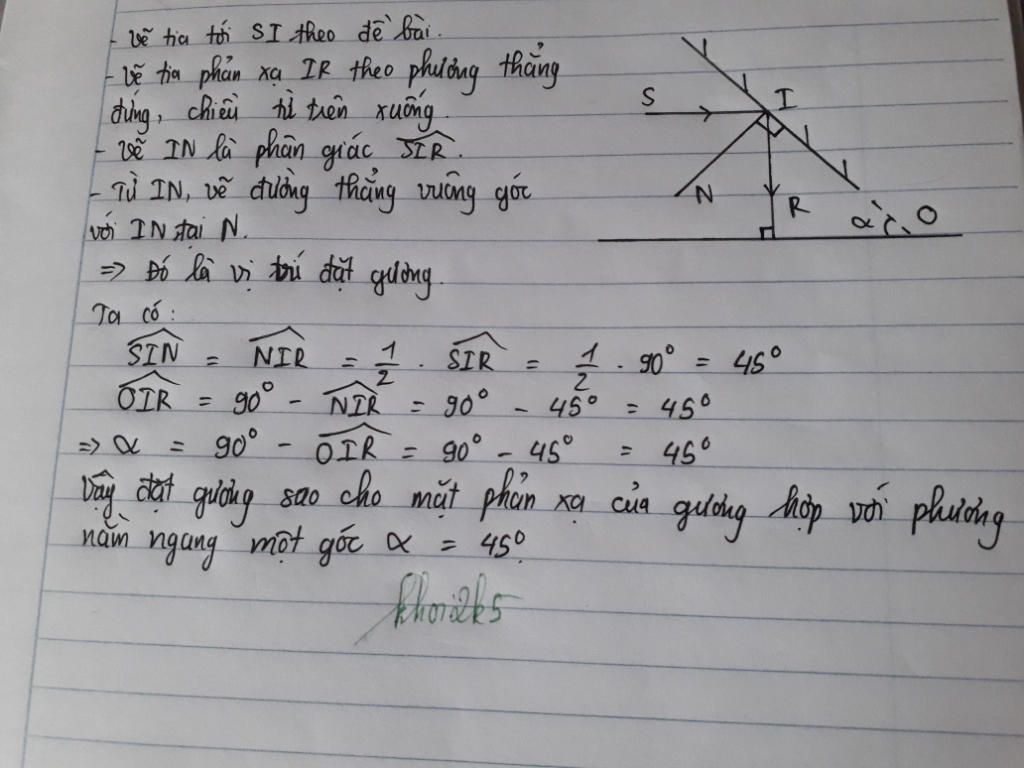 - Vẽ tia tới SI theo đề bài.
- Vẽ tia phản xạ IR theo phương thẳng
đứng, chiều từ trên xuống.
- Vẽ IN là phân giác SIR.
- Từ IN, vẽ đường thẳng vuông góc
với IN tại N.
=> Đó là vị trí đặt gương.
Ta có:
SIN = NIR = 1/2 . SIR = 1/2 . 90° = 45°
OIR = 90° - NIR = 90° - 45° = 45°
=> α = 90° - OIR = 90° - 45° = 45°
Vậy đặt gương sao cho mặt phản xạ của gương hợp với phương
nằm ngang một góc α = 45°.
khoi2k5
S
I
N
R
α
O